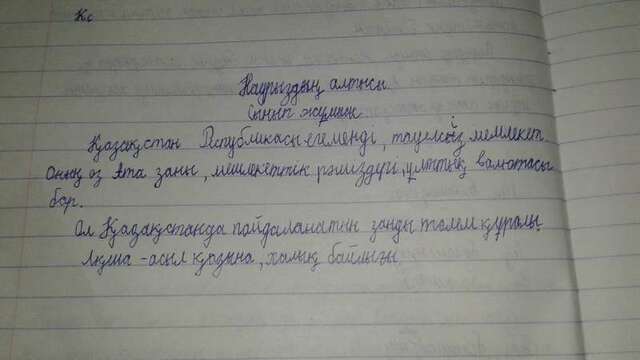 Кс
Наурыздың алтысы
Сынып жұмыс
Қазақстан Республикасы егеменді, тәуелсіз мемлекет.
Оның өз Ата заңы, мемлекеттік рәміздері, ұлттық валютасы
бар.
Ол Қазақстанда пайдаланатын заңды төлем құралы.
Ақша - асыл қазына, халық байлығы